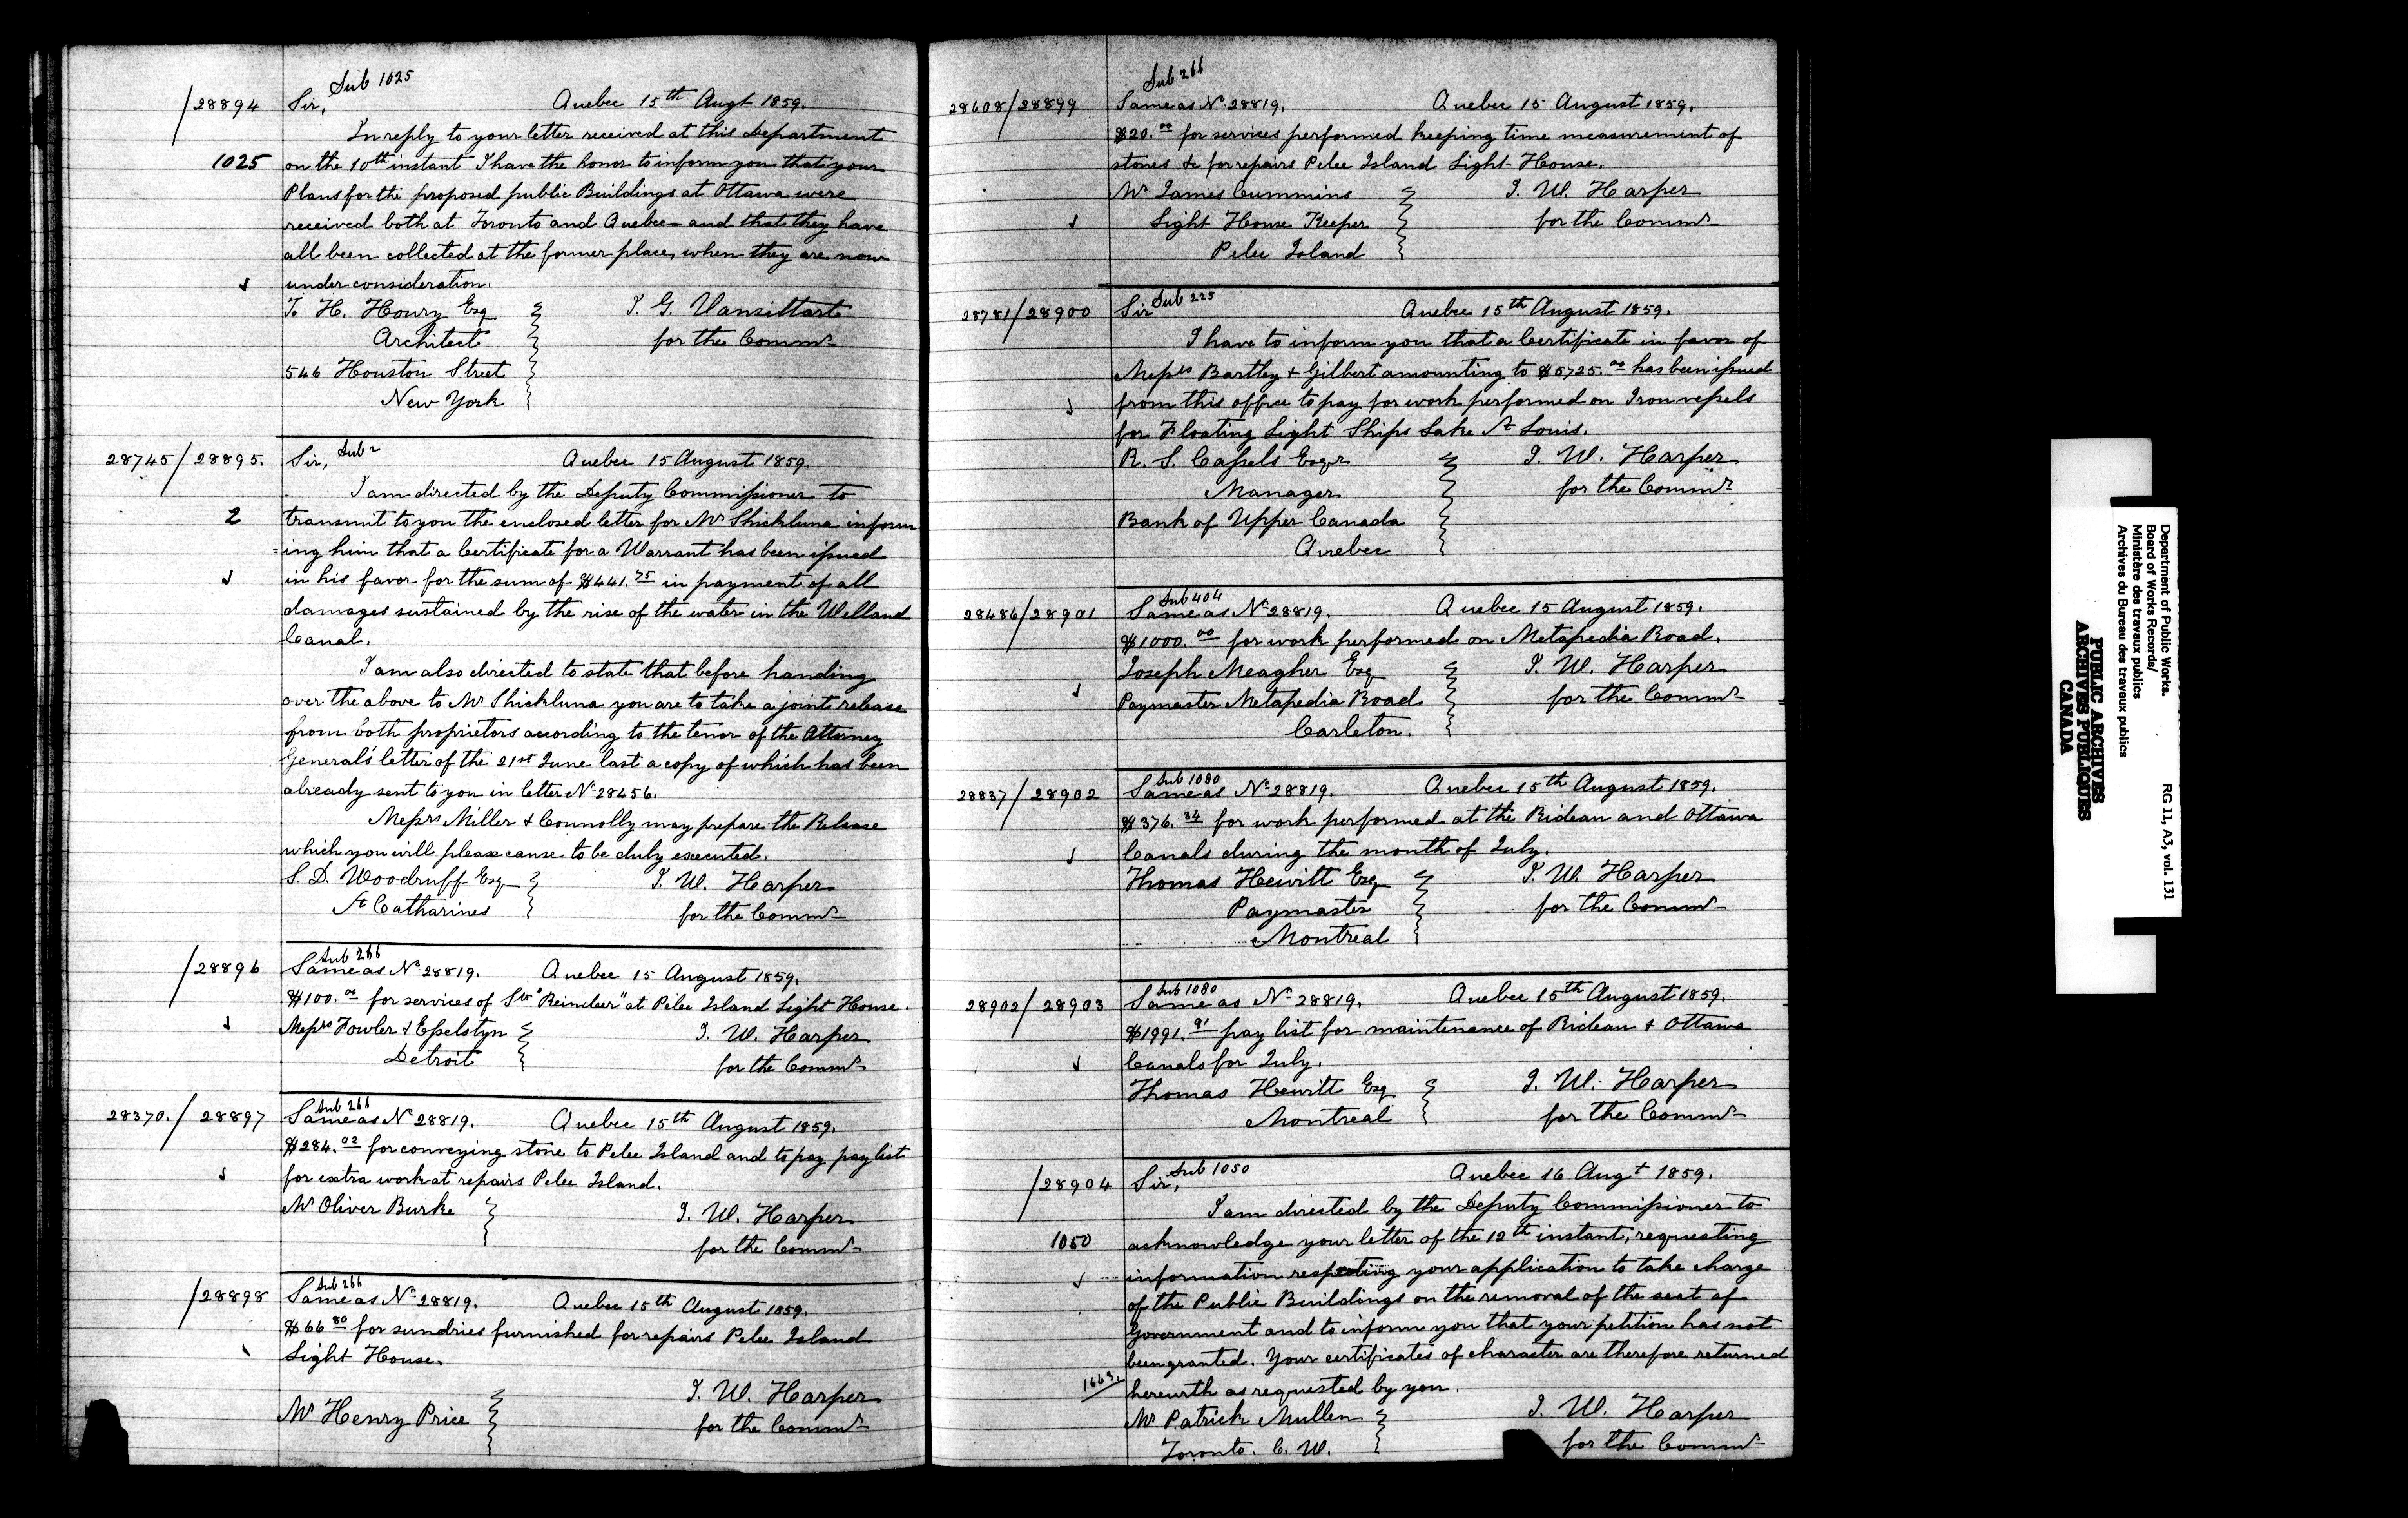 Sub 1025
/28894 Sir, Quebec 15th Augt 1859.
In reply to your letter received at this Department
1025 on the 10th instant I have the honor to inform you that your
Plans for the proposed public Buildings at Ottawa were
received both at Toronto and Quebec and that they have
all been collected at the former place, when they are now
under consideration.
T. H. Houry Esq T. G. Vansittart
Architect for the Commr
546 Houston Street
New York
28745/28895. Sir, Sub 2 Quebec 15 August 1859.
I am directed by the Deputy Commissioner to
2 transmit to you the enclosed letter for Mr Shickluna inform
=ing him that a Certificate for a Warrant has been issued
in his favor for the sum of $441.75 in payment of all
damages sustained by the rise of the water in the Welland
Canal.
I am also directed to state that before handing
over the above to Mr Shickluna you are to take a joint release
from both proprietors according to the tenor of the Attorney
General's letter of the 21st June last a copy of which has been
already sent to you in letter No 28456.
Messrs Miller & Connolly may prepare the Release
which you will please cause to be duly executed.
S. D. Woodruff Esq T. W. Harper
St Catharines for the Commr
Sub 266
/28896 Same as No 28819. Quebec 15 August 1859.
$100.00 for services of Str "Reindeer" at Pelee Island Light House.
Messrs Fowler & Esselstyn T. W. Harper
Detroit for the Commr
Sub 266
28370./28897 Same as No 28819. Quebec 15th August 1859.
$284.02 for conveying stone to Pelee Island and to pay pay list
for extra work at repairs Pelee Island.
Mr Oliver Burke T. W. Harper
for the Commr
Sub 266
/28898 Same as No 28819. Quebec 15th August 1859.
$66 80 for sundries furnished for repairs Pelee Island
Light House.
T. W. Harper
Mr Henry Price for the Commr
Sub 266
28608/28899 Same as No 28819. Quebec 15 August 1859.
$20.00 for services performed keeping time measurement of
stones &c for repairs Pelee Island Light-House.
Mr James Cummins T. W. Harper
Light House Keeper for the Commr
Pelee Island
28781/28900 Sir Sub 225 Quebec 15th August 1859.
I have to inform you that a Certificate in favor of
Messrs Bartley & Gilbert amounting to $5725.00 has been issued
from this office to pay for work performed on Iron vessels
for Floating Light Ships Lake St Louis.
R. S. Cassels Esqr T. W. Harper
Manager for the Commr
Bank of Upper Canada
Quebec
Sub 404
28486/28901 Same as No 28819. Quebec 15 August 1859.
$1000.00 for work performed on Metapedia Road.
Joseph Meagher Esq T. W. Harper
Paymaster Metapedia Road for the Commr
Carleton.
Sub 1080
28837/28902 Same as No 28819. Quebec 15th August 1859.
$376.34 for work performed at the Rideau and Ottawa
Canals during the month of July.
Thomas Hewitt Esq T. W. Harper
Paymaster for the Commr
Montreal
Sub 1080
28902/28903 Same as No 28819. Quebec 15th August 1859.
$1991.91 pay list for maintenance of Rideau & Ottawa
Canals for July.
Thomas Hewitt Esq T. W. Harper
Montreal for the Commr
/28904 Sir, Sub 1050 Quebec 16 Augt 1859.
I am directed by the Deputy Commissioner to
1050 acknowledge your letter of the 12th instant, requesting
information respecting your application to take charge
of the Public Buildings on the removal of the seat of
Government and to inform you that your petition has not
been granted. Your certificates of character are therefore returned
1663. herewith as requested by you.
Mr Patrick Mullen T. W. Harper
Toronto. C. W. for the Commr
Department of Public Works.
Board of Works Records/
Ministère des travaux publics
Archives du Bureau des travaux publics
RG 11, A3, vol. 131
PUBLIC ARCHIVES
ARCHIVES PUBLIQUES
CANADA